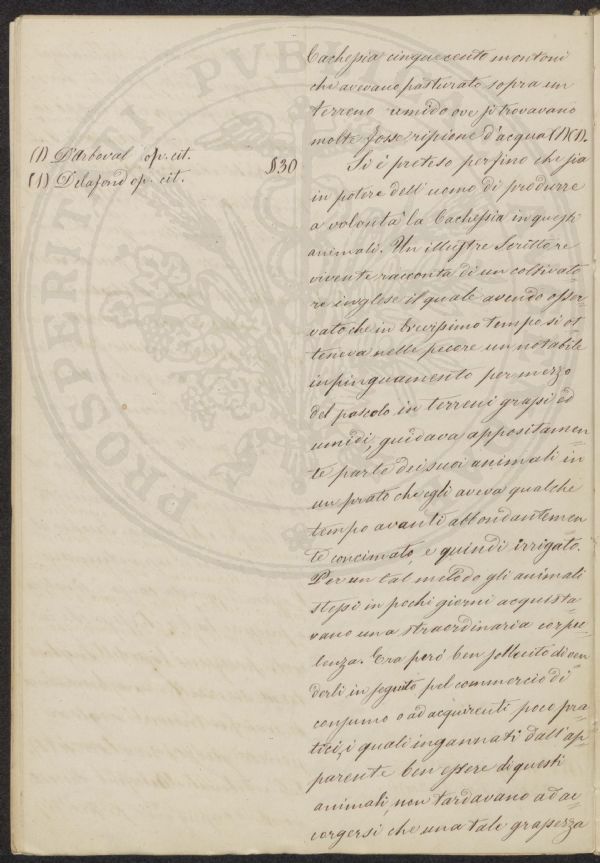 Cachessia cinquecento montoni
che avevano pasturato sopra un
terreno umido ove si trovavano
molte fosse ripiene d'acqua (1) (1).
(1) D'Arboval op. cit.
(1) Delafond op. cit.
§ 30
Si è preteso perfino che sia
in potere dell'uomo di produrre
a volontà la Cachessia in questi
animali. Un illustre Scrittore
vivente racconta di un coltivato-
re inglese il quale avendo osser-
vato che in brevissimo tempo si ot
teneva nelle pecore un notabile
inpinguamento per mezzo
del pascolo in terreni grassi ed
umidi, guidava appositamen-
te parte dei suoi animali in
un prato che egli aveva qualche
tempo avanti abbondantemen
te concimato, e quindi irrigato.
Per un tal metodo gli animali
stessi in pochi giorni acquista-
vano una straordinaria corpu-
lenza. Era però ben sollecito di ven
derli in seguito pel commercio di
consumo o ad acquirenti poco pra-
tici, i quali ingannati dall'ap-
parente ben essere di questi
animali, non tardavano ad ac-
corgersi che una tale grassezza
PROSPERITATI PVBLIC